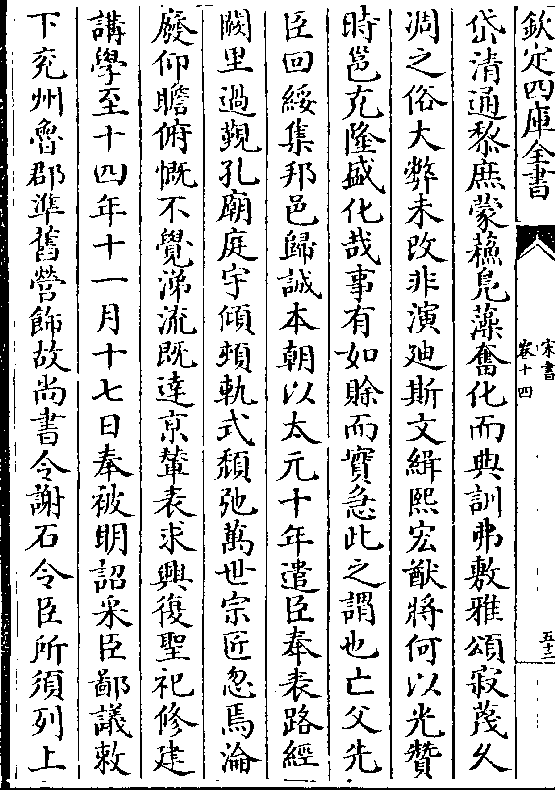 欽定四庫全書
宋書
卷十四
五十二
岱清通黎庶蒙蘓鳬藻奮化而典訓弗敷雅頌寂蔑久
凋之俗大弊未改非演廸斯文緝熙宏猷將何以光贊
時邕克隆盛化哉事有如賒而實急此之謂也亡父先
臣回綏集邦邑歸誠本朝以太元十年遣臣奉表路經
闕里過覲孔廟庭宇傾頓軌式頽弛萬世宗匠忽焉淪
廢仰瞻俯慨不覺涕流既達京輦表求興復聖祀修建
講學至十四年十一月十七日奉被明詔采臣鄙議敕
下兖州魯郡準舊營飾故尚書令謝石令臣所須列上